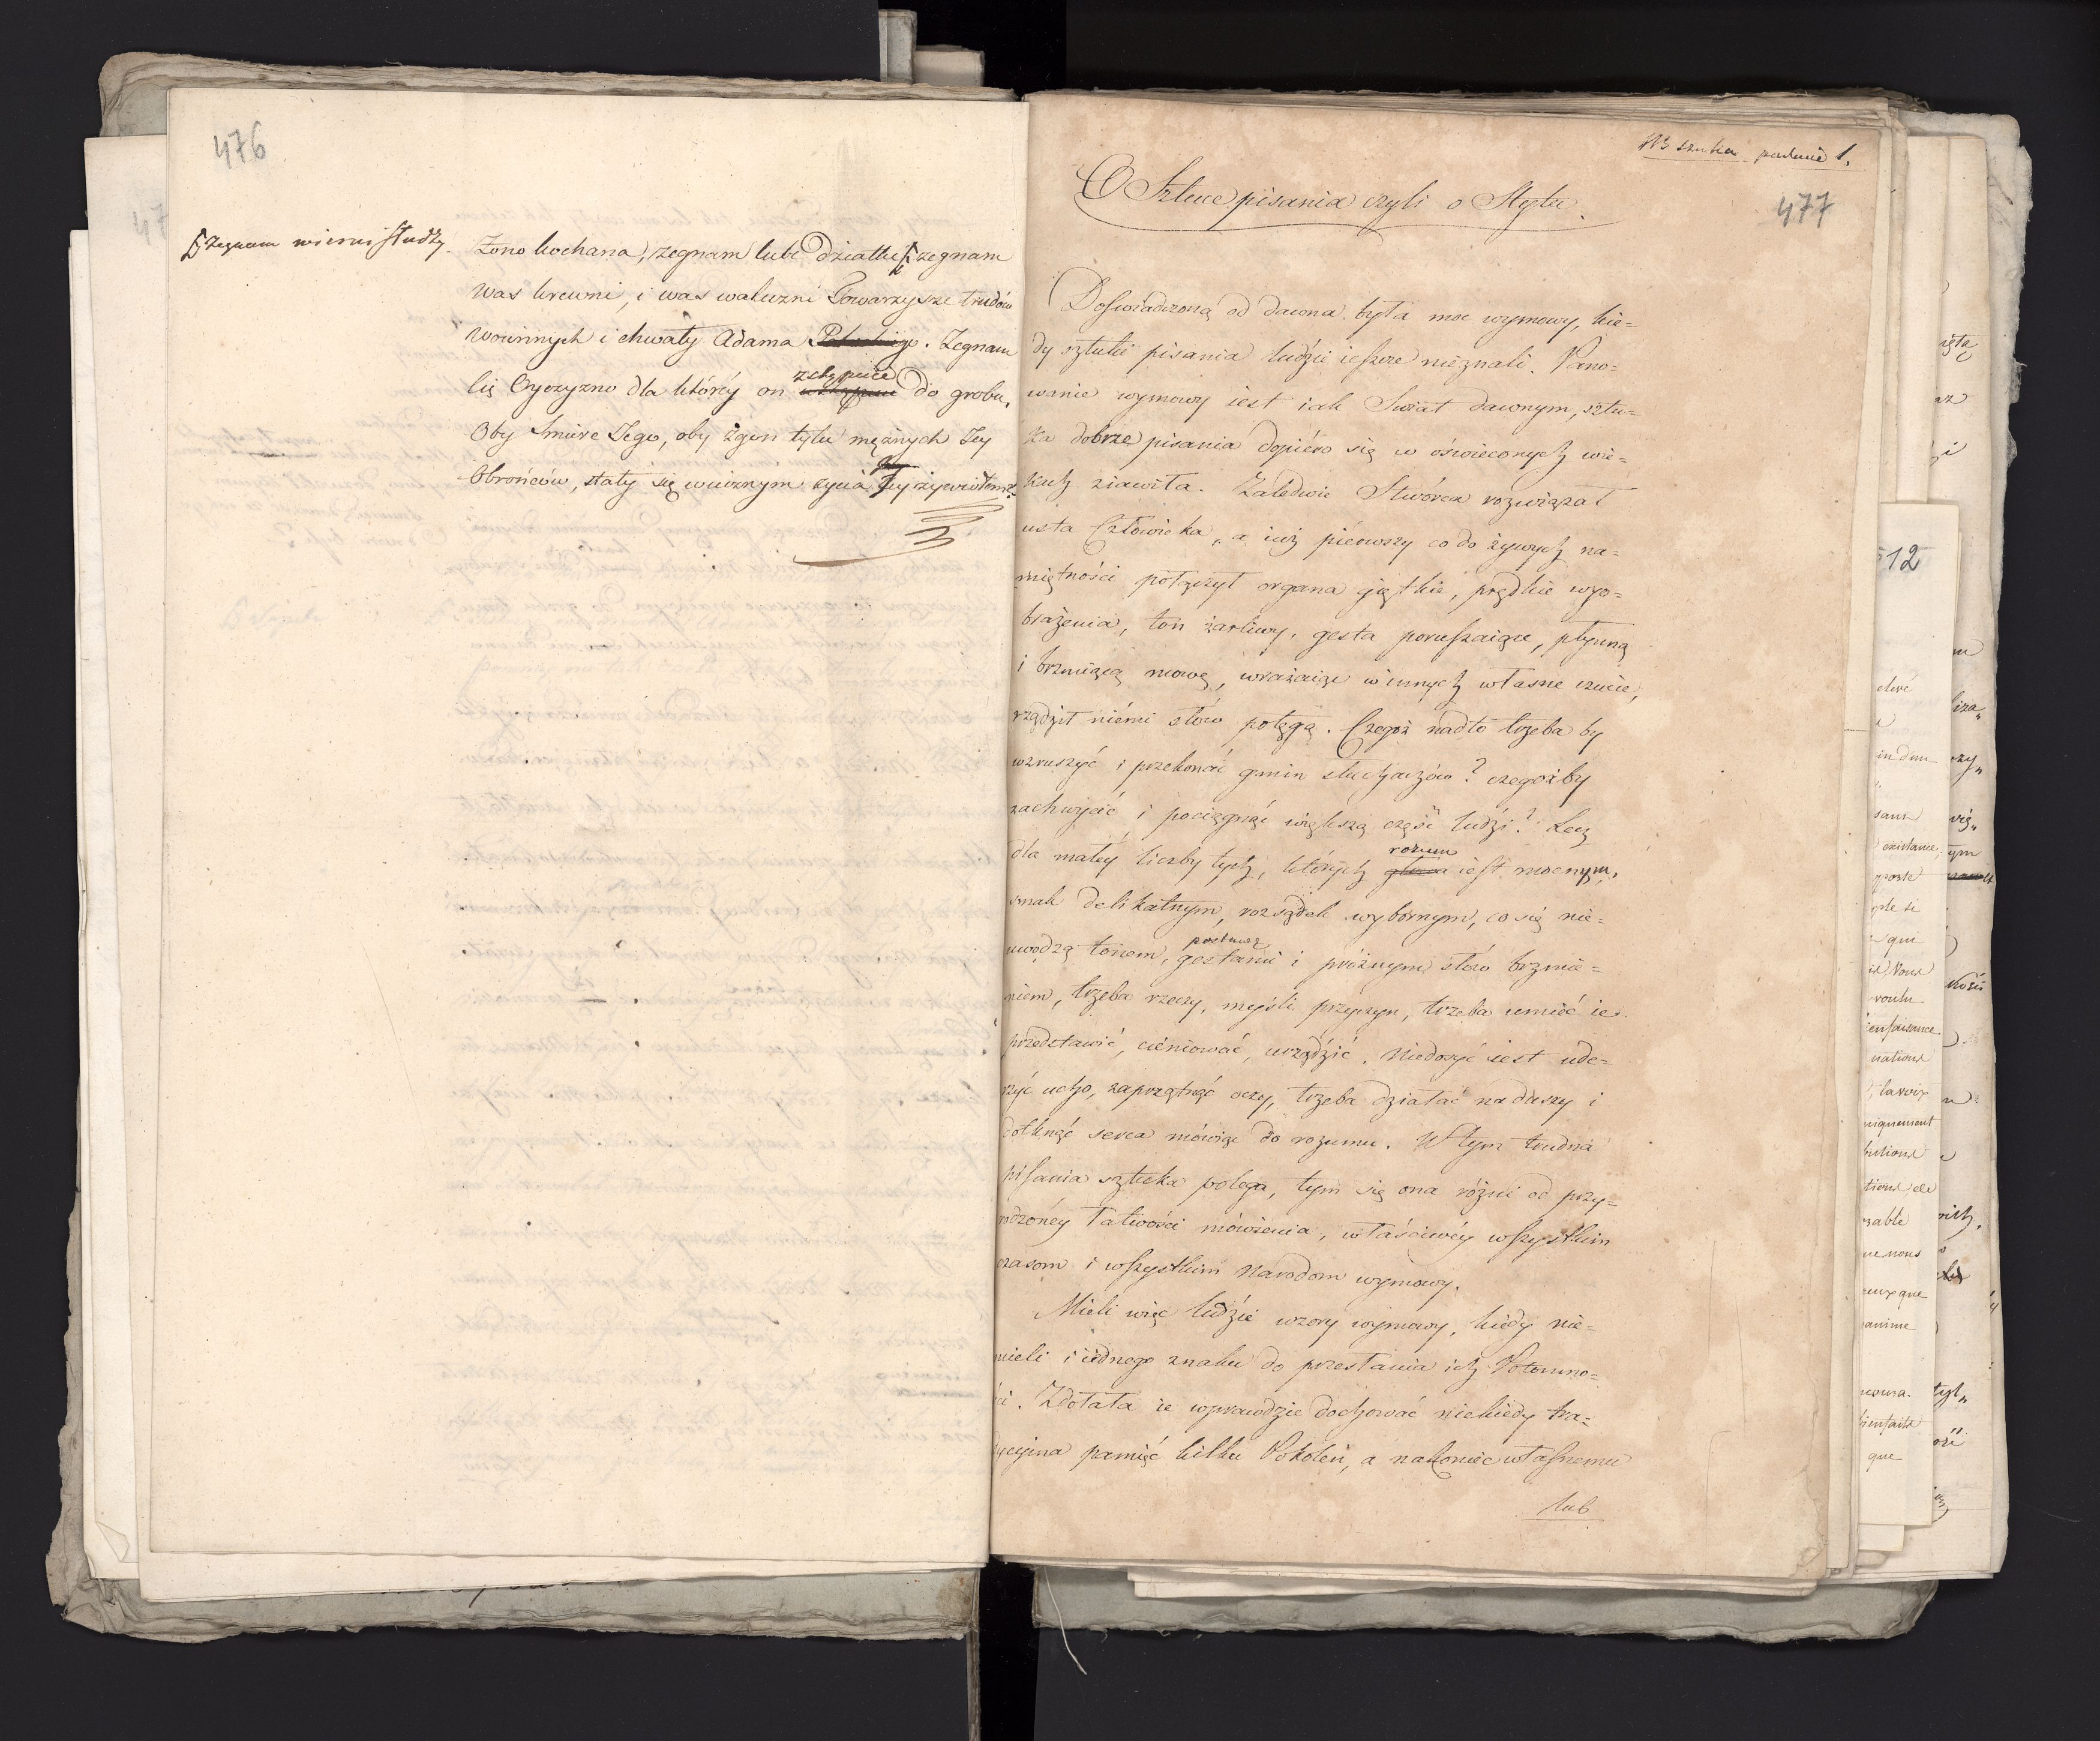 476
żegnam wierni słudzy.
Żono kochana, żegnam lube dziatki żegnam
was krewni, i was waleczni Towarzysze trudów
woiennych i chwały Adama Potockiego. Żegnam
cię Oyczyzno dla któréy on zstępuie do grobu.
Oby śmierć Jego, oby zgon tylu mężnych Jey
Obrońców, stały się wiecznym życia Jey żywiołem.
477
O Sztuce pisania czyli o Stylu.
Doświadczoną od dawna była moc wymowy, kie=
dy sztuki pisania ludzie ieszcze nieznali. Pano=
wanie wymowy iest iak Świat dawnym, sztu=
ka dobrze pisania dopiéro się w oświeconych wie=
kach ziawiła. Zaledwie Stwórca rozwiązał
usta Człowieka, a iuż piérwszy co do żywych na=
miętności połączył organa giętkie, prędkie wyo=
brażenia, ton żarliwy, gesta poruszaiące, płynną
i brzmiącą mowę, wrażaiąc w innych własne czucie,
rządził niémi słów potęgą. Czegoż nadto trzeba by
wzruszyć i przekonać gmin słuchaczów? czegożby
zachwycić i pociągnąć większą część ludzi? Lecz
dla małéy liczby tych, których głowa rozum iest mocnym,
smak delikatnym, rozsądek wybornym, co się nie=
uwodzą tonem, postawą gestami i próżnym słów brzmie=
niem, trzeba rzeczy, myśli przyczyn, trzeba umieć ie
przedstawić, cieniować, urządzić. Niedosyć iest ude=
rzyć ucho, zaprzątnąć oczy, trzeba działać na duszy i
dotknąć serca mówiąc do rozumu. W tym trudna
pisania sztuka polega, tym się ona różni od przy=
rodzonéy łatwości mówienia, właściwéy wszystkim
czasom i wszystkim Narodom wymowy.
Mieli więc ludzie wzory wymowy, kiedy nie=
mieli i iednego znaku do przesłania ich Potomno=
ści. Zdołała ie wprawdzie dochować niekiedy tra=
dycyina pamięć kilku Pokoleń, a nakoniec własnemu
lub
12